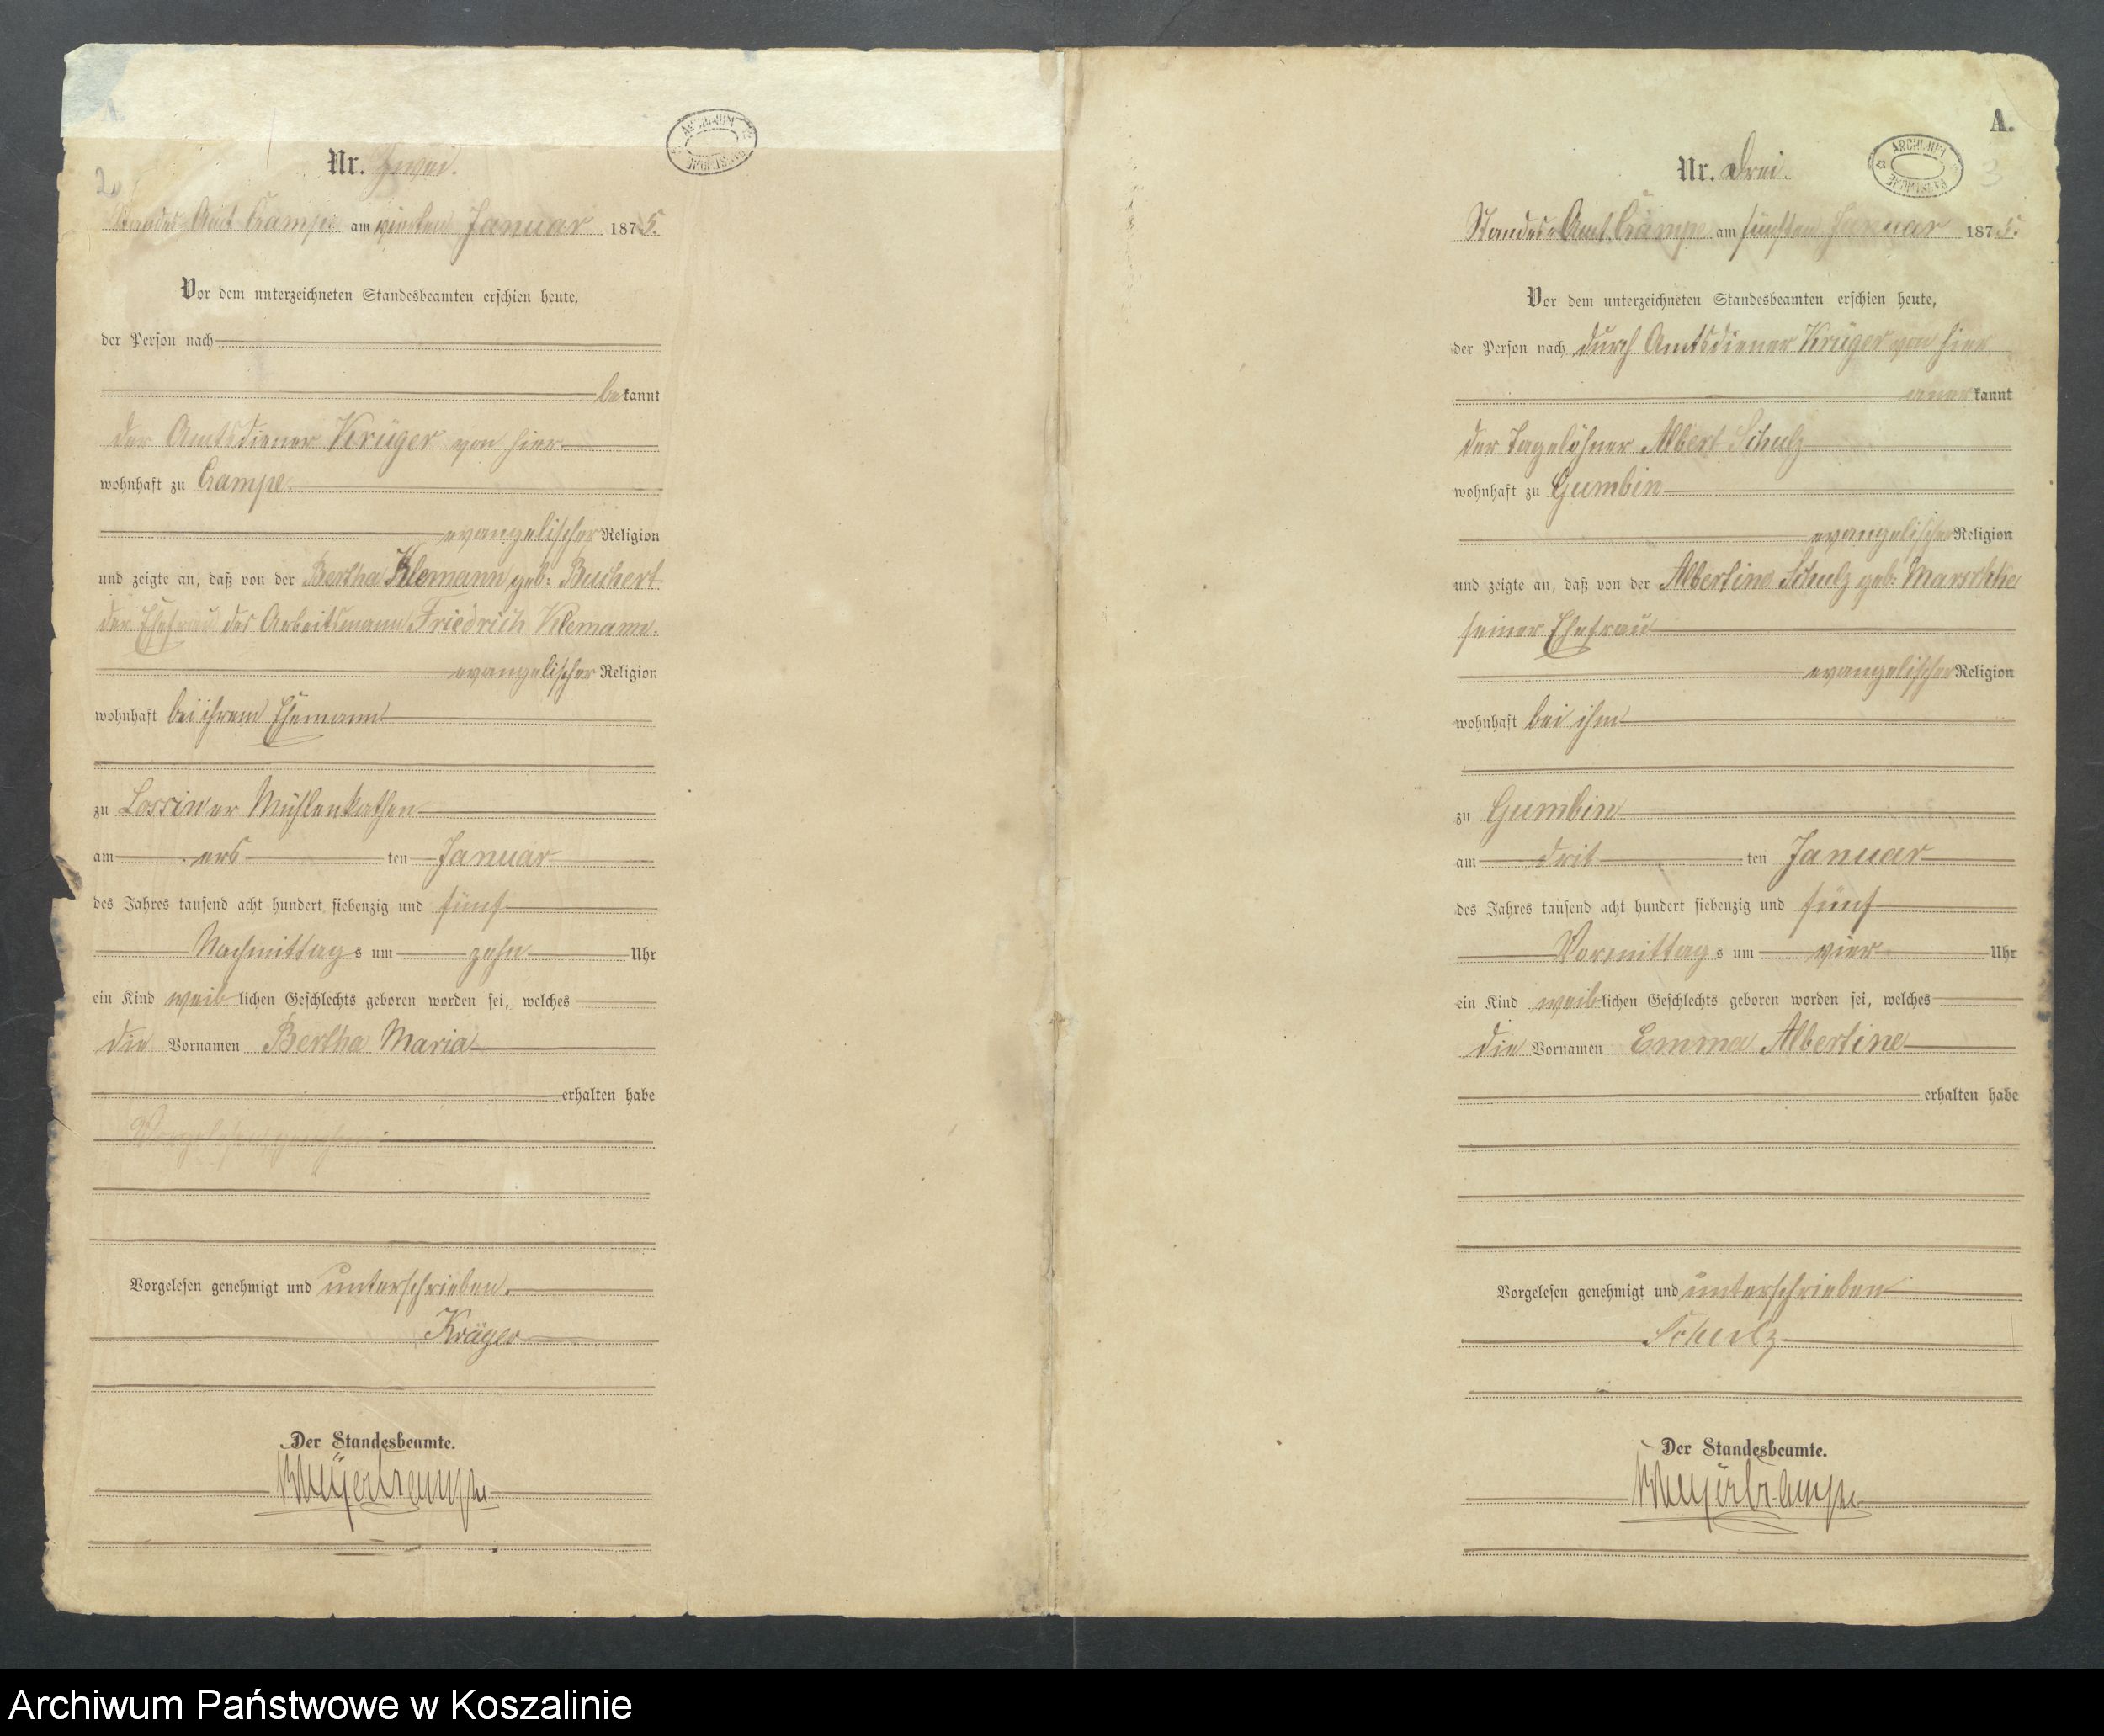 2
Nr. Zwei.
Standes-Amt Crampe am vierten Januar 1875.
Vor dem unterzeichneten Standesbeamten erschien heute,
der Person nach
bekannt
der Amtsdiener Krüger von hier
wohnhaft zu Crampe
evangelischer Religion
und zeigte an, daß von der Bertha Klemann geb: Buchert
der Ehefrau des Arbeitsmann Friedrich Klemann.
evangelischer Religion
wohnhaft bei ihrem Ehemann
zu Lossiner Mühlenkathen
am ers ten Januar
des Jahres tausend acht hundert siebenzig und fünf
Nachmittags um zehn Uhr
ein Kind weiblichen Geschlechts geboren worden sei, welches
die Vornamen Bertha Maria
erhalten habe
Vorgelesen genehmigt und unterschrieben.
Krüger
Der Standesbeamte.
A.
ARCHIWUM PAŃSTWOWE
3
Nr. Drei.
Standes-Amt Crampe am fünften Januar 1875.
Vor dem unterzeichneten Standesbeamten erschien heute,
der Person nach durch Amtsdiener Krüger von hier
anerkannt
der Tagelöhner Albert Schulz
wohnhaft zu Gumbin
evangelischer Religion
und zeigte an, daß von der Albertine Schulz geb: Marschke
seiner Ehefrau
evangelischer Religion
wohnhaft bei ihm
zu Gumbin
am drit ten Januar
des Jahres tausend acht hundert siebenzig und fünf
Vormittags um vier Uhr
ein Kind weiblichen Geschlechts geboren worden sei, welches
die Vornamen Emma Albertine
erhalten habe
Vorgelesen genehmigt und unterschrieben
Schulz
Der Standesbeamte.
Archiwum Państwowe w Koszalinie